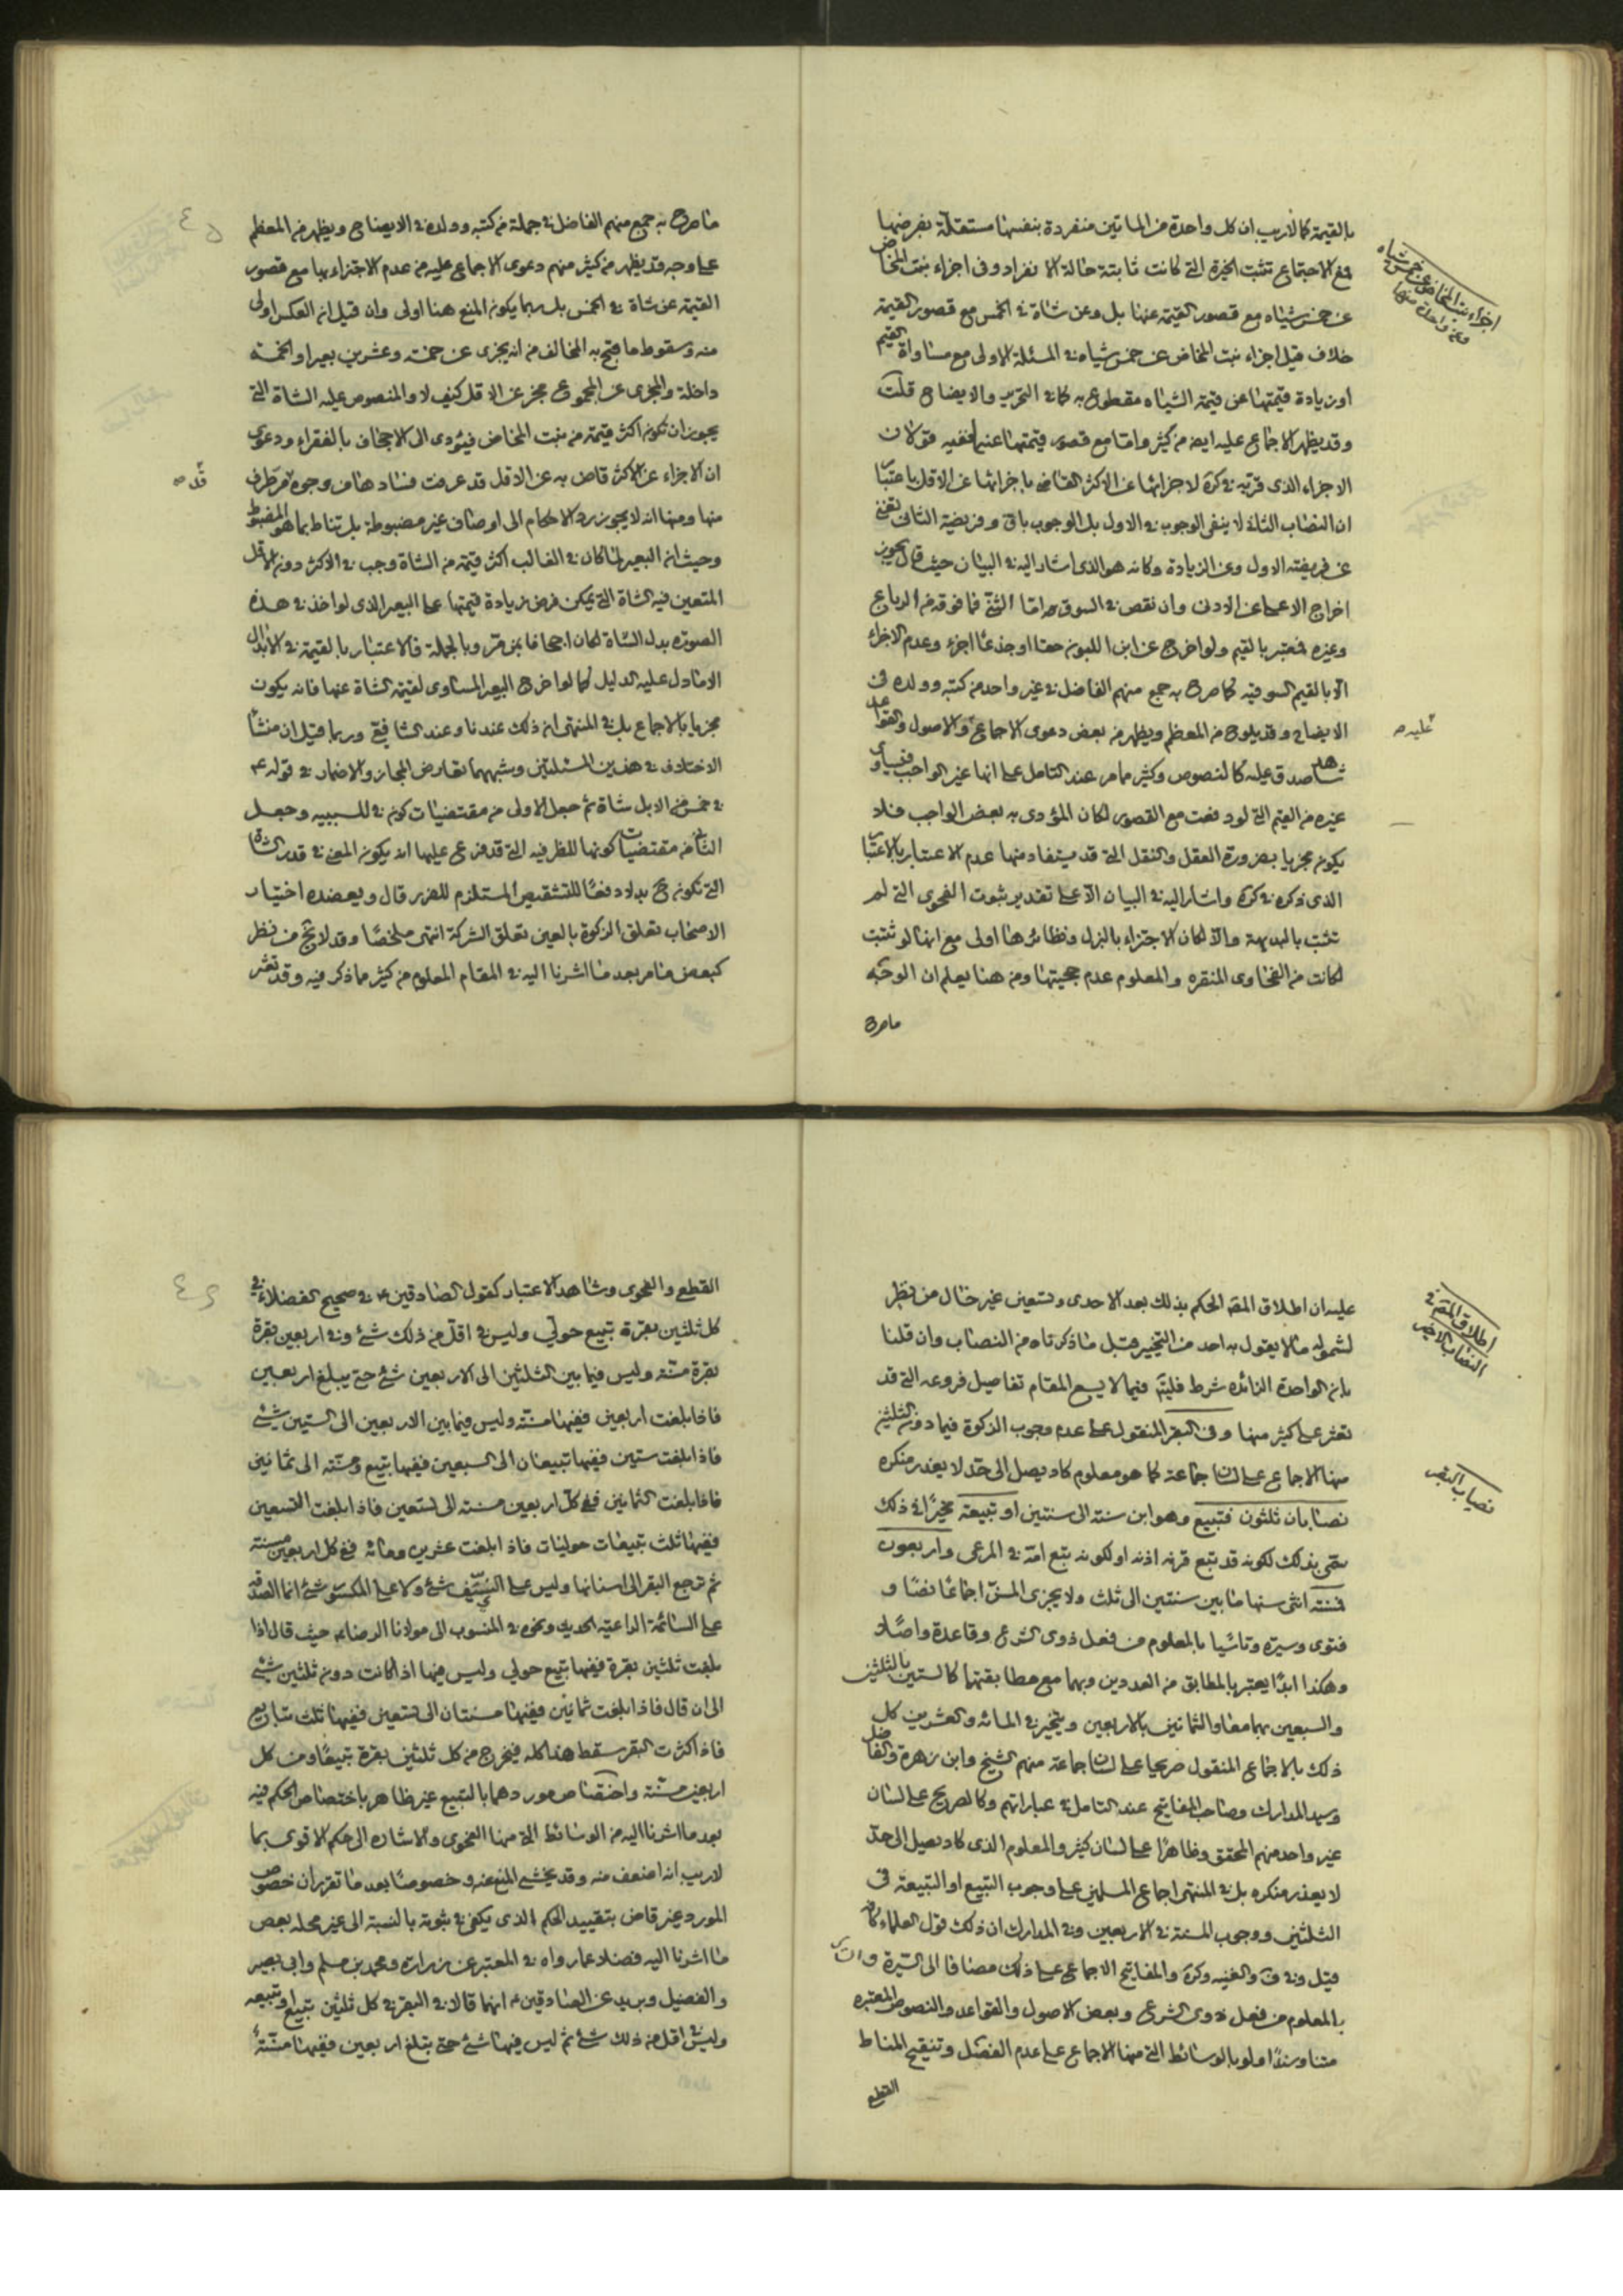 بالقيمة كما لا ريب ان كل واحدة من الماتين منفردة بنفسها مستقلة بفرضها
فمع الاجتماع تثبت الخيرة التى كانت ثابتة حالة الانفراد وفى اجزاء بنت المخاض
عن خمس شياه مع قصور القيمة عنها بل وعن شاة فى الخمس مع قصور القيمة
خلاف قيل اجزاء بنت المخاض عن خمس شياه فى المسئلة الاولى مع مساواة القيم
او زيادة قيمتها عن قيمة الشياه مقطوع به كما فى التحرير والايضاح قلت
وقد يظهر الاجماع عليه ايض من كثير واما مع قصور قيمتها عنها ففيه قولان
الاجزاء الذى قربه فى كره لاجزائها عن الاكثر القاضى باجزائها عن الاقل باعتبار
ان النصاب الثانى لا ينفى الوجوب فى الاول بل الوجوب باق وفريضة الثانى تغنى
عن فريضة الاول وعن الزيادة وكانه هو الذى اشار اليه فى البيان حيث قال يجوز
اخراج الاعلى عن الادنى وان نقص فى السوق اما الثنى فما فوقه من الرباع
وغيره فمعتبر بالقيم ولو اخرج عن ابن اللبون حقا او جذعا اجزء وعدم الاجزاء
الا بالقيم السوقيه كما صرح به جمع منهم الفاضل فى غير واحد من كتبه وولده فى
الايضاح وقد يلوح من المعظم ويظهر من بعض دعوى الاجماع والاصول والقواعد
شاهد صدق عليه كالنصوص وكثير مامر عند التامل على انها غير الواجب فيساوى
غيره من القيم التى لو دفعت مع القصور لكان المؤدى به بعض الواجب فلا
يكون مجزيا بضرورة العقل والنقل التى قد يستفاد منها عدم الاعتبار بالاعتبار
الذى ذكره فى كره واشار اليه فى البيان الا على تقدير ثبوت الفحوى التى لم
تثبت بالبديهة والا لكان الاجتزاء بالبزل ونظائرها اولى مع انها لو ثبتت
لكانت من الفحاوى المنقره والمعلوم عدم حجيتها ومن هنا يعلم ان الوجه
ماصرح
اجزاء بنت المخاض عن خمس شياه
وعن واحدة منها
عليه صه
ماصرح به جمع منهم الفاضل فى جملة من كتبه وولده فى الايضاح ويظهر من المعظم
على وجه قد يظهر من كثير منهم دعوى الاجماع عليه من عدم الاجتزاء بها مع قصور
القيمة عن شاة فى الخمس بل ربما يكون المنع هنا اولى وان قيل ان العكس اولى
منه وسقوط ما يحتج به المخالف من انه يجزى عن خمسة وعشرين بعيرا والخمسة
داخلة والمجزى عن المجموع مجز عن الاقل كيف لا والمنصوص عليه الشاة التى
يجوز ان تكون اكثر قيمة من بنت المخاض فيؤدى الى الاجحاف بالفقراء ودعوى
ان الاجزاء عن الاكثر قاض به عن الاقل قد عرفت فسادها من وجوه مر طرف
منها ومنها انه لا يجوز رد الاحكام الى اوصاف غير مضبوطة بل تناط بما هو المضبوط
وحيث ان البعير لما كان فى الغالب اكثر قيمة من الشاة وجب فى الاكثر دون الاقل
المتعين فيه الشاة التى يمكن فرض زيادة قيمتها على البعير الذى لو اخذ فى هذه
الصوره بدل الشاة لكان اجحافا بمن قرر وبالجملة فالاعتبار بالقيمة فى الابدال
الا ما دل عليه الدليل كما لو اخرج البعير المساوى لقيمة الشاة عنها فانه يكون
مجزيا بالاجماع بل فى المنتهى ان ذلك عندنا وعند الشافعى وربما قيل ان منشأ
الاختلاف فى هذين المسئلتين وشبههما تعارض المجاز والاضمار فى قوله ع
فى خمس من الابل شاة ثم جعل الاولى من مقتضيات كون فى للسببيه وجعل
الثانى من مقتضيات كونها للظرفيه التى قد فرع عليها انه يكون المعنى فى قدر الشاة
التى تكون ح بدلا دفعا للتشقيص المستلزم للضرر قال ويعضده اختيار
الاصحاب تعلق الزكوة بالعين تعلق الشركة انتهى ملخصا وقد لا يخ من نظر
كبعض مامر بعد ما اشرنا اليه فى المقام المعلوم من كثير ما ذكر فيه وقد تعثر
عليه ان اطلاق المقه الحكم بذلك بعد الاحدى وتسعين غير خال من نظر
لشموله مالا يقول به احد من التخيير قبل ما ذكرناه من النصاب وان قلنا
بان الواحدة الزائده شرط فليتم فيما لا يسع المقام تفاصيل فروعه التى قد
تعثر على كثير منها وفى البقر المنقول على عدم وجوب الزكوة فيما دون الثلثين
منها الاجماع على لسان جماعة كما هو معلوم كاد يصل الى حد لا يعذر منكره
نصابان ثلثون فتبيع وهو ابن سنة الى سنتين او تبيعة مخيرا فى ذلك
سمى بذلك لكونه قد تبع قرنه اذنه او لكونه يتبع امه فى المرعى واربعون
فمسنة انثى سنها ما بين سنتين الى ثلث ولا يجزى المسن اجماعا نصا و
فتوى وسيرة وتاسيا بالمعلوم من فعل ذوى الشرع وقاعدة واصلا
وهكذا ابدا يعتبر بالمطابق من العددين وبهما مع مطابقتهما كالستين بالثلثين
والسبعين بهما معا والثمانين بالاربعين ويتخير فى المائه والعشرين كل
ذلك بالاجماع المنقول صريحا على لسان جماعة منهم الشيخ وابن زهرة والفاضل
وسيد المدارك وصاحب المفاتيح عند التامل فى عباراتهم وكالصريح على لسان
غير واحد منهم المحقق وظاهرا على لسان كثير والمعلوم الذى كاد يصل الى حد
لا يعذر منكره بل فى المنتهى اجماع المسلمين على وجوب التبيع او التبيعة فى
الثلثين ووجوب المسنة فى الاربعين وفى المدارك ان ذلك قول العلماء كافة
قيل وفى ف والغنيه وكره والمفاتيح الاجماع على ذلك مضافا الى السيرة و
بالمعلوم من فعل ذوى الشرع وبعض الاصول والقواعد والنصوص المعتبره
متنا وسندا ولو بالوسائط التى منها الاجماع على عدم الفصل وتنقيح المناط
القطع
اطلاق المقه فى
النصاب الاخير
نصاب البقر
القطع والفحوى وشاهد الاعتبار كقول الصادقين ع فى صحيح الفضلاء فى
كل ثلثين بقرة تبيع حولى وليس فى اقل من ذلك شئ وفى اربعين بقرة
بقرة مسنة وليس فيما بين الثلثين الى الاربعين شئ حتى يبلغ اربعين
فاذا بلغت اربعين ففيها مسنة وليس فيما بين الاربعين الى الستين شئ
فاذا بلغت ستين ففيها تبيعان الى السبعين ففيها تبيع ومسنة الى ثمانين
فاذا بلغت الثمانين ففى كل اربعين مسنة الى تسعين فاذا بلغت التسعين
ففيها ثلث تبيعات حوليات فاذا بلغت عشرين ومائة ففى كل اربعين مسنة
ثم ترجع البقر الى اسنانها وليس على النيف شئ ولا على الكسور شئ انما الصدقة
على السائمة الراعية الحديث ونحوه فى المنسوب الى مولانا الرضا ع حيث قال اذا
بلغت ثلثين بقرة ففيها تبيع حولي وليس فيها اذا كانت دون ثلثين شئ
الى ان قال فاذا بلغت ثمانين ففيها مسنتان الى تسعين ففيها ثلث تبايع
فاذا كثرت البقر سقط هذا كله فيخرج من كل ثلثين بقرة تبيعا ومن كل
اربعين مسنة واختصاص موردهما بالتبيع غير ظاهر باختصاص الحكم فيه
بعد ما اشرنا اليه من الوسائط التى منها الفحوى والاشاره الى حكم الاقوى بما
لا ريب انه اضعف منه وقد يخشى المنع عنه وخصوصا بعد ما تقرر ان خصوص
المورد غير قاض بتقييد الحكم الذى يكفى فى ثبوته بالنسبة الى غير محله بعض
ما اشرنا اليه فضلا عما رواه فى المعتبر عن زرارة ومحمد بن مسلم وابى بصير
والفضيل وبريد عن الصادقين ع انهما قالا فى البقر فى كل ثلثين تبيع او تبيعه
وليس فى اقل من ذلك شئ ثم ليس فيها شئ حتى يبلغ اربعين ففيها مسنة